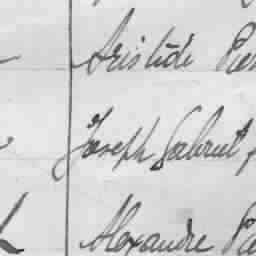 Aristide
Joseph Gabriel
Alexandre